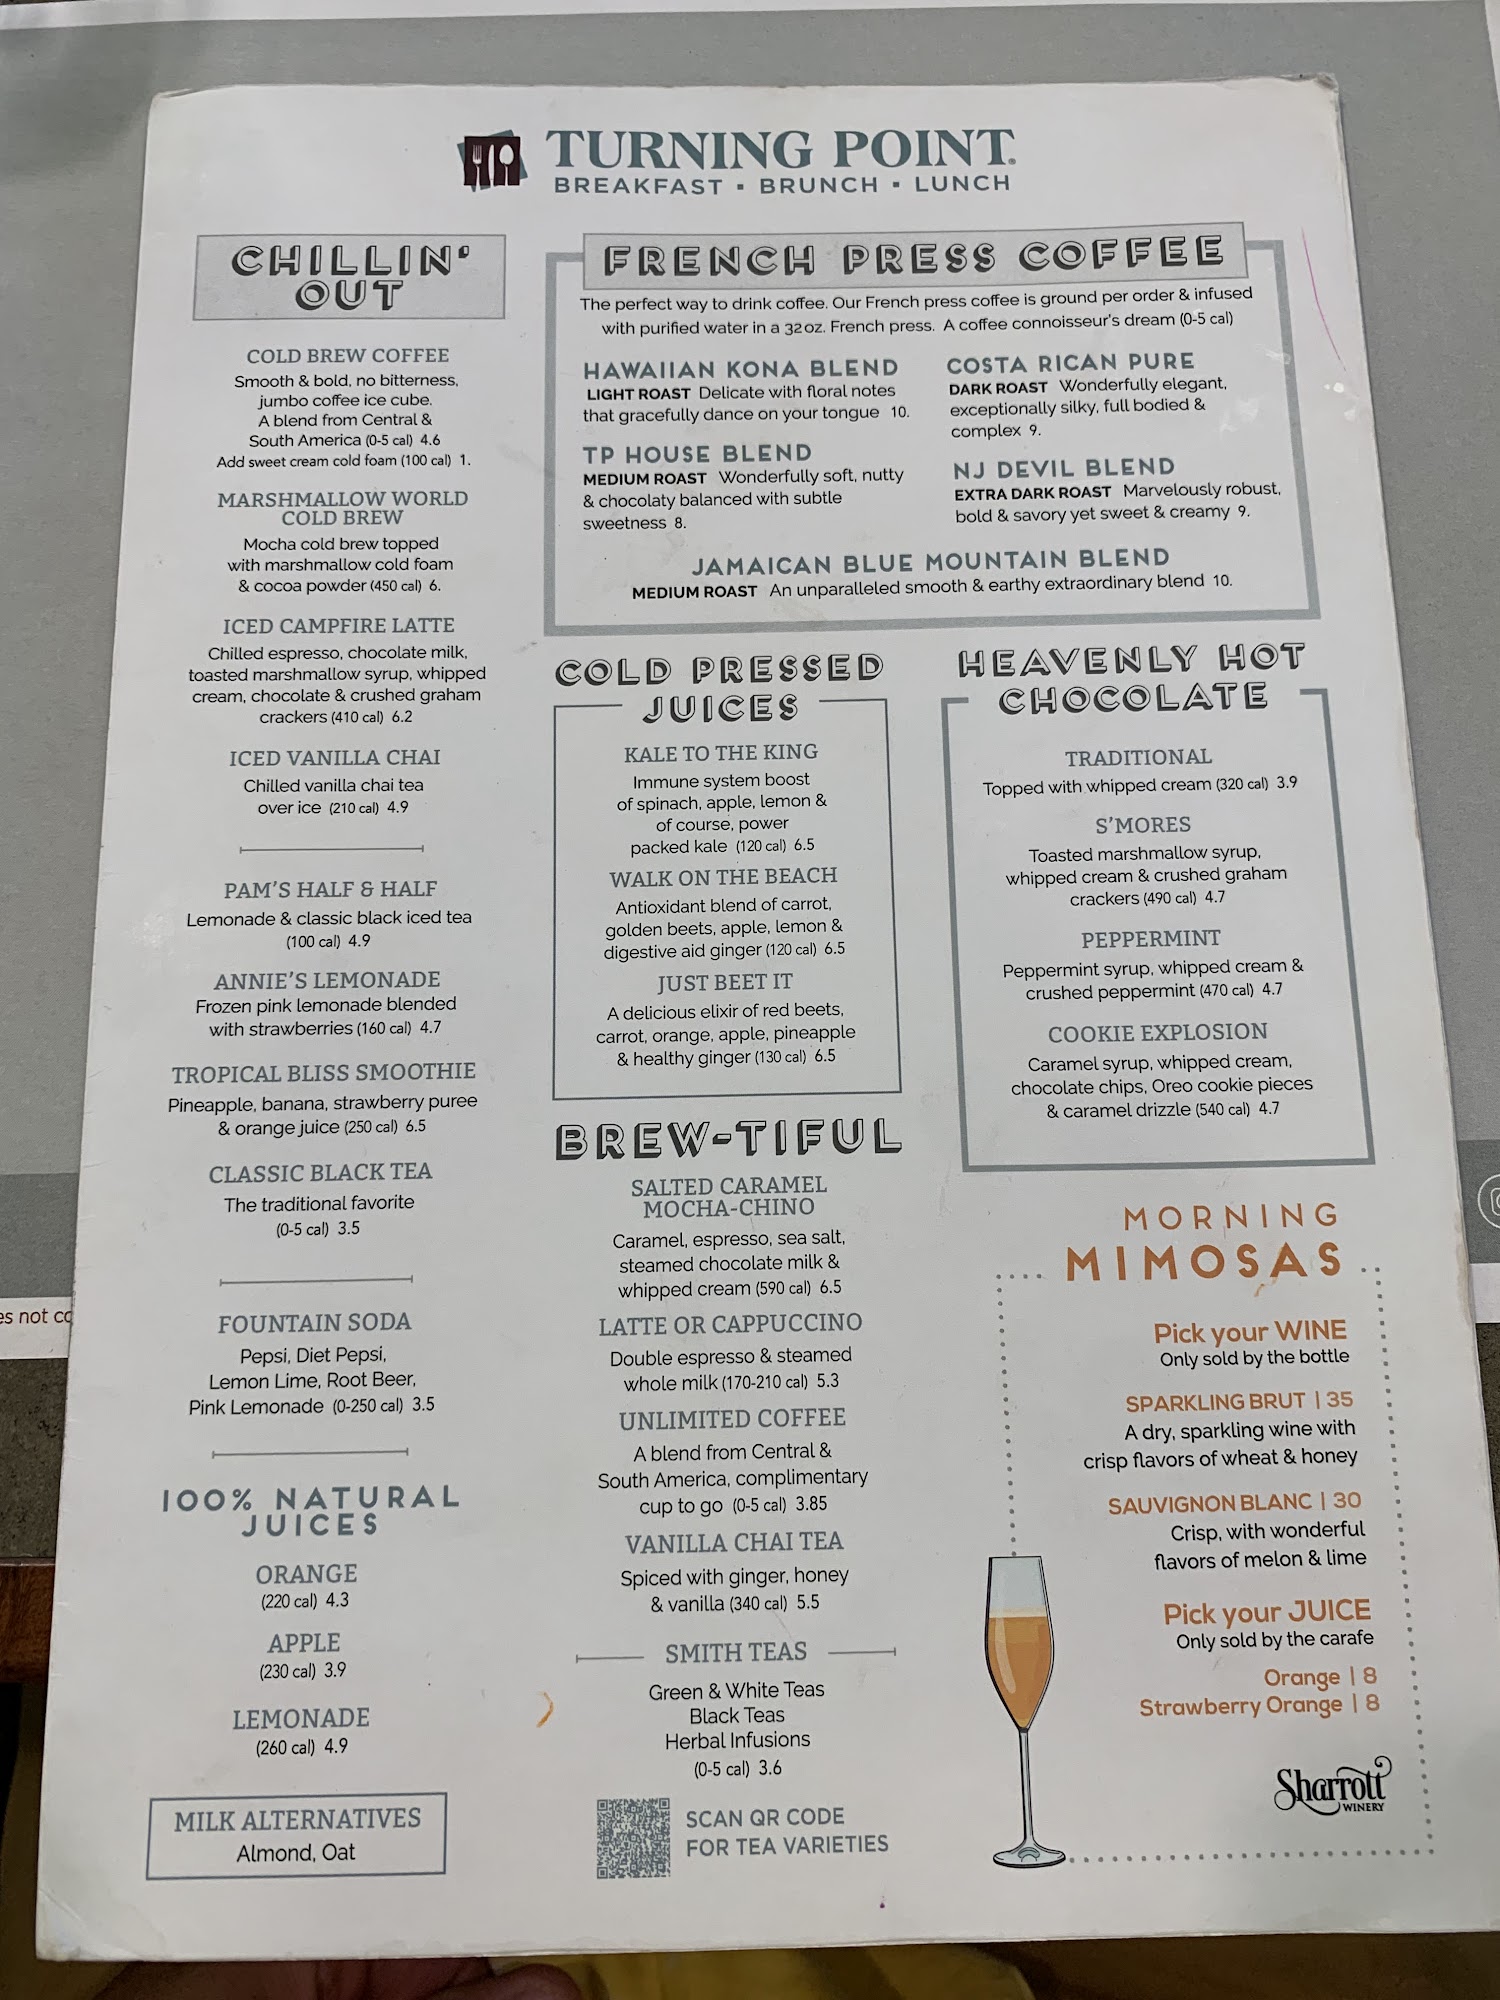 TURNING POINT
BREAKFAST ▪ BRUNCH ▪ LUNCH
CHILLIN'
OUT
COLD BREW COFFEE
Smooth & bold, no bitterness,
jumbo coffee ice cube.
A blend from Central &
South America (0-5 cal) 4.6
Add sweet cream cold foam (100 cal) 1.
MARSHMALLOW WORLD
COLD BREW
Mocha cold brew topped
with marshmallow cold foam
& cocoa powder (450 cal) 6.
ICED CAMPFIRE LATTE
Chilled espresso, chocolate milk,
toasted marshmallow syrup, whipped
cream, chocolate & crushed graham
crackers (410 cal) 6.2
ICED VANILLA CHAI
Chilled vanilla chai tea
over ice (210 cal) 4.9
PAM'S HALF & HALF
Lemonade & classic black iced tea
(100 cal) 4.9
ANNIE'S LEMONADE
Frozen pink lemonade blended
with strawberries (160 cal) 4.7
TROPICAL BLISS SMOOTHIE
Pineapple, banana, strawberry puree
& orange juice (250 cal) 6.5
CLASSIC BLACK TEA
The traditional favorite
(0-5 cal) 3.5
FOUNTAIN SODA
Pepsi, Diet Pepsi,
Lemon Lime, Root Beer,
Pink Lemonade (0-250 cal) 3.5
100% NATURAL
JUICES
ORANGE
(220 cal) 4.3
APPLE
(230 cal) 3.9
LEMONADE
(260 cal) 4.9
MILK ALTERNATIVES
Almond, Oat
FRENCH PRESS COFFEE
The perfect way to drink coffee. Our French press coffee is ground per order & infused
with purified water in a 32oz. French press. A coffee connoisseur's dream (0-5 cal)
HAWAIIAN KONA BLEND
LIGHT ROAST Delicate with floral notes
that gracefully dance on your tongue 10.
TP HOUSE BLEND
MEDIUM ROAST Wonderfully soft, nutty
& chocolaty balanced with subtle
sweetness 8.
COSTA RICAN PURE
DARK ROAST Wonderfully elegant,
exceptionally silky, full bodied &
complex 9.
NJ DEVIL BLEND
EXTRA DARK ROAST Marvelously robust,
bold & savory yet sweet & creamy 9.
JAMAICAN BLUE MOUNTAIN BLEND
MEDIUM ROAST An unparalleled smooth & earthy extraordinary blend 10.
COLD PRESSED
JUICES
KALE TO THE KING
Immune system boost
of spinach, apple, lemon &
of course, power
packed kale (120 cal) 6.5
WALK ON THE BEACH
Antioxidant blend of carrot,
golden beets, apple, lemon &
digestive aid ginger (120 cal) 6.5
JUST BEET IT
A delicious elixir of red beets,
carrot, orange, apple, pineapple
& healthy ginger (130 cal) 6.5
BREW-TIFUL
SALTED CARAMEL
MOCHA-CHINO
Caramel, espresso, sea salt,
steamed chocolate milk &
whipped cream (590 cal) 6.5
LATTE OR CAPPUCCINO
Double espresso & steamed
whole milk (170-210 cal) 5.3
UNLIMITED COFFEE
A blend from Central &
South America, complimentary
cup to go (0-5 cal) 3.85
VANILLA CHAI TEA
Spiced with ginger, honey
& vanilla (340 cal) 5.5
SMITH TEAS
Green & White Teas
Black Teas
Herbal Infusions
(0-5 cal) 3.6
SCAN QR CODE
FOR TEA VARIETIES
HEAVENLY HOT
CHOCOLATE
TRADITIONAL
Topped with whipped cream (320 cal) 3.9
S'MORES
Toasted marshmallow syrup,
whipped cream & crushed graham
crackers (490 cal) 4.7
PEPPERMINT
Peppermint syrup, whipped cream &
crushed peppermint (470 cal) 4.7
COOKIE EXPLOSION
Caramel syrup, whipped cream,
chocolate chips, Oreo cookie pieces
& caramel drizzle (540 cal) 4.7
MORNING
MIMOSAS
Pick your WINE
Only sold by the bottle
SPARKLING BRUT | 35
A dry, sparkling wine with
crisp flavors of wheat & honey
SAUVIGNON BLANC | 30
Crisp, with wonderful
flavors of melon & lime
Pick your JUICE
Only sold by the carafe
Orange | 8
Strawberry Orange | 8
Sharrott
WINERY
es not co